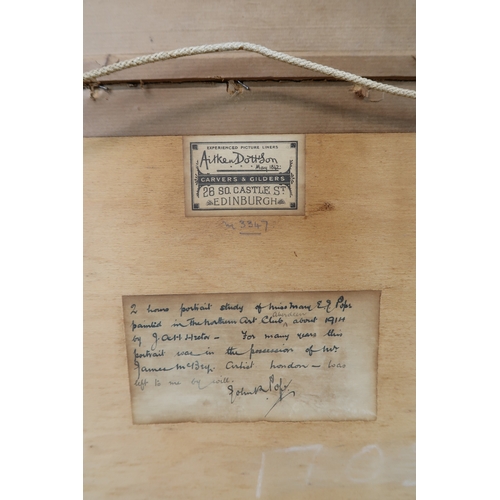 EXPERIENCED PICTURE LINERS
Aitken Dott & Son
CARVERS & GILDERS
26 SO. CASTLE ST
EDINBURGH
3347
2 hours portrait study of Miss Mary E J Pope
Aberdeen
painted in the Northern Art Club, about 1914
by J. A. H. Hector - For many years this
portrait was in the possession of Mr
James McBey. Artist London - was
left to me by
John R. Pope